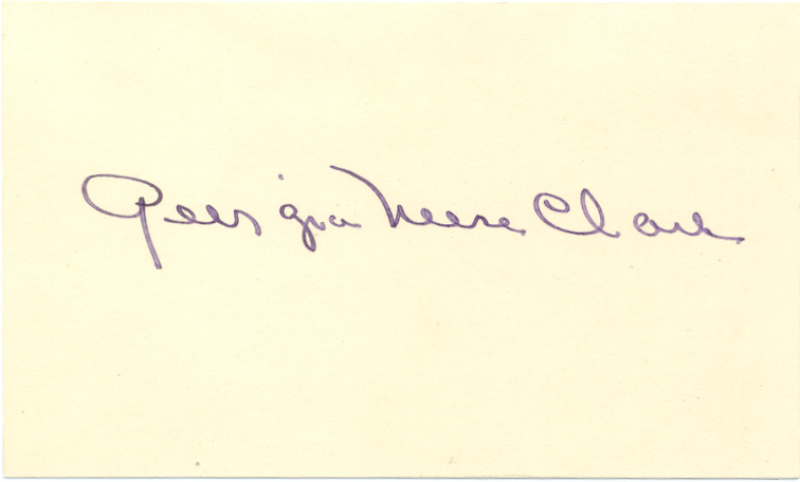 Georgia Neese Clark